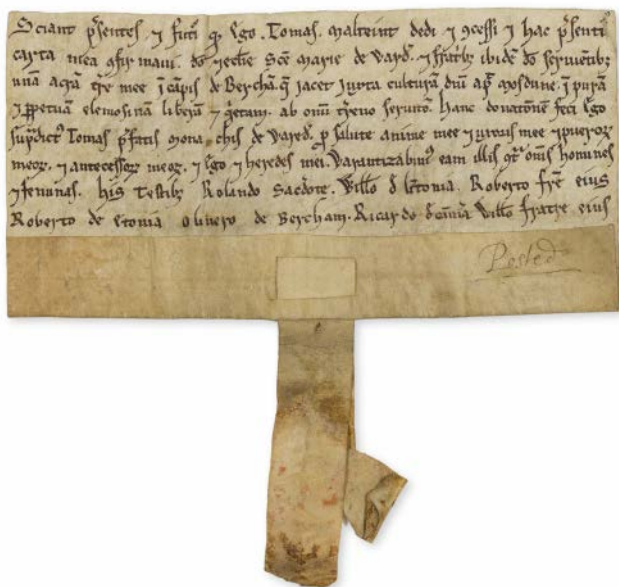 Sciant p̄sentes ⁊ futi͛ q̄ Ego . Tomas . malteint dedi ⁊ ↄcessi ⁊ hac p̄senti
carta mea ↄfirmaui . do ⁊ ecclie Scē marie de Ward̄ . ⁊ fratrib; ibidē do seruientib;
unā acrā tr̄e mee ī cāpis de Berchā . q̄ jacet iuxta culturā dn̄i apd̄ mosdune . ī purā
⁊ ꝑpetuam elemosinam liberam ⁊ q̄etam . ab om̄i t̄reno seruitō . Hanc donatōnem feci Ego
sup̄dict᷒ Tomas p̄fatis monachis de Wared̄ . ꝓ salute anime mee ⁊ uxoris mee ⁊ pueroꝝ
meoꝝ . ⁊ antecessoꝝ meoꝝ . ⁊ Ego ⁊ heredes mei . Warantizabim᷒ eam illis ꝯtr̄ om̄s homines
⁊ feminas . his Testib; Rolando Sac̄dote . Willo d̄ . Roberto fr̄e eius
Roberto de Oliuero de Bercham . Ricardo Willo fratre eius
Posted